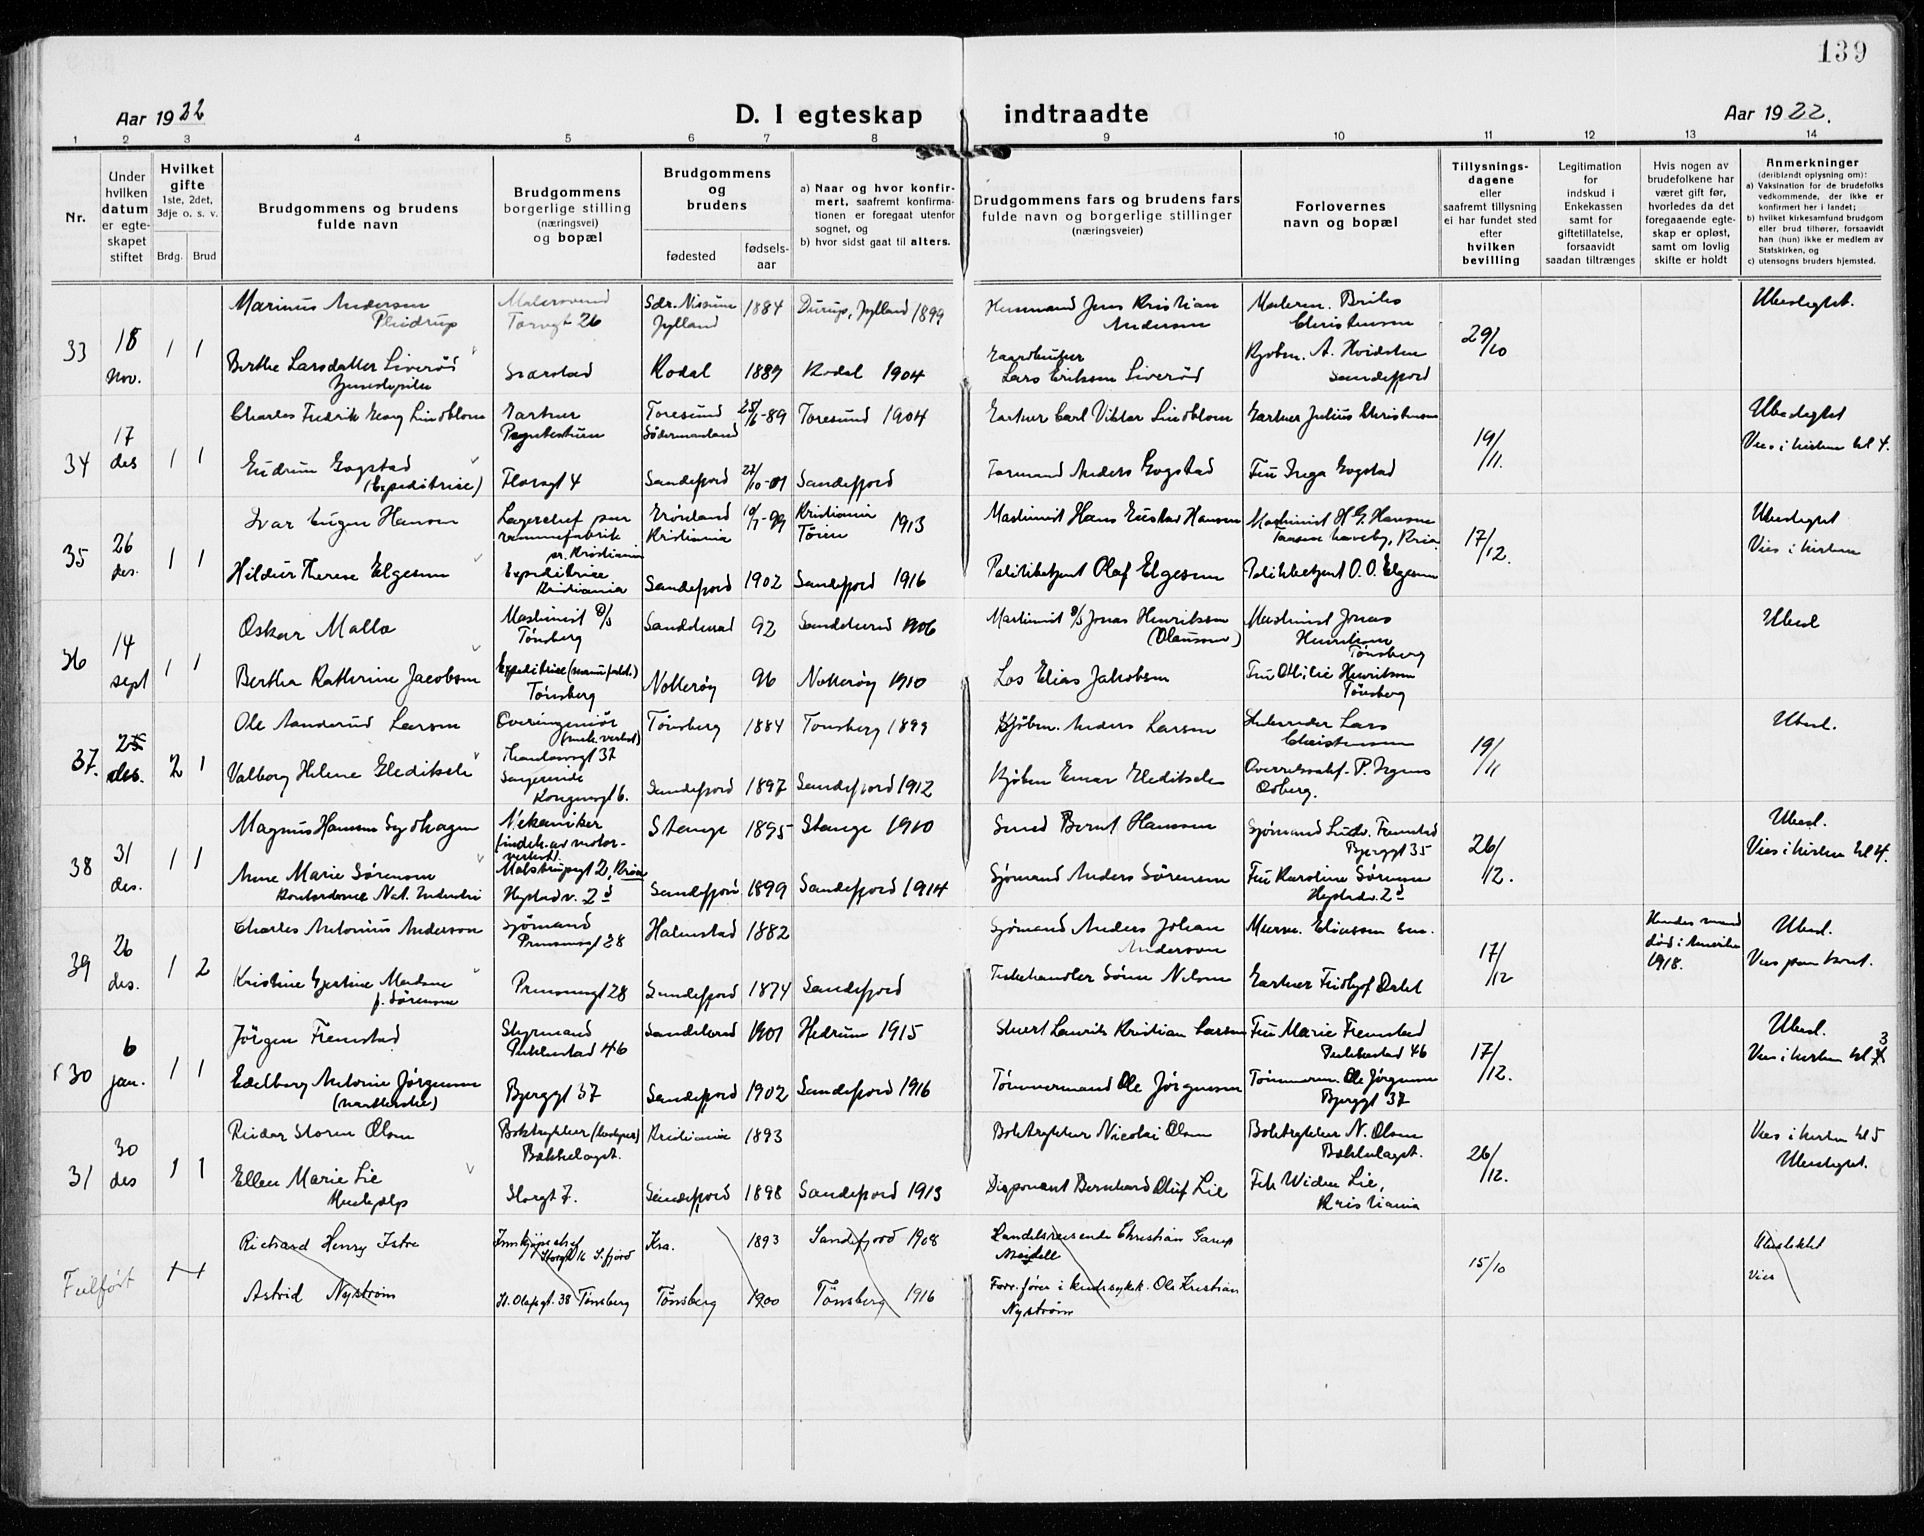 139
Aar 1922
D. I egteskap indtraadte
Aar 1922.
1 2 3 4 5 6 7 8 9 10 11 12 13 14
Nr.
Under
hvilken
datum
er egte-
skapet
stiftet
Hvilket
gifte
1ste, 2det,
3dje o. s. v.
Brdg. Brud
Brudgommens og brudens
fulde navn
Brudgommens
borgerlige stilling
(næringsvei)
og bopæl
Brudgommens
og
brudens
fødested
fødsels-
aar
a) Naar og hvor konfir-
mert, saafremt konfirma-
tionen er foregaat utenfor
sognet, og
b) hvor sidst gaat til alters.
Brudgommens fars og brudens fars
fulde navn og borgerlige stillinger
(næringsveier)
Forlovernes
navn og bopæl
Tillysnings-
dagene
eller
saafremt tillysning
ei har fundet sted
efter
hvilken
bevilling
Legitimation
for
indskud i
Enkekassen
samt for
giftetillatelse,
forsaavidt
saadan tiltrænges
Hvis nogen av
brudefolkene har
været gift før,
hvorledes da det
foregaaende egte-
skap er opløst,
samt om lovlig
skifte er holdt
Anmerkninger
(deriblandt oplysning om):
a) Vaksination for de brudefolks
vedkommende, der ikke er
konfirmert her i landet;
b) hvilket kirkesamfund brudgom
eller brud tilhører, forsaavidt
han (hun) ikke er medlem av
Statskirken, og
c) utensogns bruders hjemsted.
33
18
Nov.
1 1
Marinus Andersen
Torvgt 26
Sdr. Nissum
Jylland
1884
Durup, Jylland 1899
Husmand Jens Kristian
Andersen
Christensen
29/10
Ubeslegtet.
Berthe Larsdatter Liverød
Kodal 1889
Kodal 1904
Gaardbruker
Lars Eriksen Liverød
Kjøbm. A. Hvidsten
Sandefjord
34
17
des
1 1
Charles Fredrik Georg Lindblom
Gartner
Toresund
Södermanland
25/6-89
Toresund 1904
Gartner Carl Viktor Lindblom
Gartner Julius Christensen
19/11.
Ubeslegtet
Vies i kirken kl 4.
Gudrun Gogstad
(Expeditrise)
Sandefjord
27/10-01
Sandefjord
Formand Anders Gogstad
Fru Inga Gogstad
35
26
des.
1 1
Ivar Eugen Hansen
Lagerchef paa
rammefabrik
pr. Kristiania
Grönland
Kristiania
Kristiania
Tøien 1913
Maskinist Hans Gustav Hansen
Maskinist H G. Hansen
17/12.
Ubeslegtet
Vies i kirken
Hildur Therese Elgesem
Expeditrise
Kristiania
Sandefjord 1902
Sandefjord 1916
Politibetjent Olaf Elgesem
Politibetjent O. O. Elgesem
36
14
sept
1 1
Oskar Mallo
Maskinist D/S
Tønsberg
Sandeherad 92
Sandeherad 1906
Maskinist D/S Jonas Henriksen
(Olaussen)
Maskinist Jonas
Henriksen
Tønsberg
Ubesl
Bertha Kathrine Jacobsen
Tønsberg
Nøtterøy 96
Nøtterøy 1910
Los Elias Jakobsen
Fru Otilie Henriksen
Tønsberg
37.
25
des.
2 1
Ole Aanderud Larsen
Overingeniør
(mek. verkst)
Tønsberg 1884
Tønsberg 1899
Kjøbm. Anders Larsen
Skibsreder Lars
Christensen
19/11
Ubesl.
Valborg Helene Gleditsch
Kongensgt 6.
Sandefjord 1897
Sandefjord 1912
Kjøbm Einar Gleditsch
38
31
des.
1 1
Magnus Hansen Sydhagen
Mekaniker
Stange 1895
Stange 1910
Smed Bernt Hanssen
Sjømand Ludv. Fremstad
Bjerggt 35
26/12.
Ubesl.
Vies i kirken kl 4.
Anne Marie Sørensen
Sandefjord 1899
Sandefjord 1914
Sjømand Anders Sørensen
Fru Karoline Sørensen
39
26
des.
1 2
Charles Antonius Anderson
Sjømand
Prinsensgt 28
Halmstad 1882
Sjømand Anders Johan
Anderson
17/12
Hendes mand
død i Amerika
1918.
Ubesl.
Kristine Gjertine Madsen
f. Sørensen
Prinsensgt 28
Sandefjord 1874
Sandefjord
Fiskehandler Søren Nilsen
Gartner Fridtjof Dalet
30
6
jan.
1 1
Jörgen Fremstad
Styrmand
Pukkestad 46
Sandeherad 1901
Hedrum 1915
Stuert Laurits Kristian Larsen
Fru Marie Fremstad
Pukkestad 46
17/12.
Ubesl.
Vies i kirken kl 3
Edelborg Antonie Jørgensen
Bjerggt 37
Sandefjord 1902
Sandefjord 1916
Tömmermand Ole Jörgensen
Tömmerm. Ole Jørgensen
Bjerggt 37
31
30
des
1 1
Reidar Storm Olsen
Boktrykker
Bækkelaget.
Kristiania 1893
Boktrykker Nicolai Olsen
Boktrykker N. Olsen
Bækkelaget.
26/12.
Vies i kirken kl 5
Ubeslegtet.
Ellen Marie Lie
Storgt 7.
Sandefjord 1898
Sandefjord 1913
Disponent Bernhard Oluf Lie
Kristiania
Fulført
1 1
Richard Henry Istre
Innkjøpschef
Storgt 16 S.fjord
Kra. 1893
Sandefjord 1908
Handelsreisende Christian Sarup
Meidell
15/10
Ubeslektet
Vies
Astrid Nystrøm
St. Olafsgt. 38 Tønsberg
Tønsberg 1900
Tønsberg 1916
Ole Kristian
Nystrøm